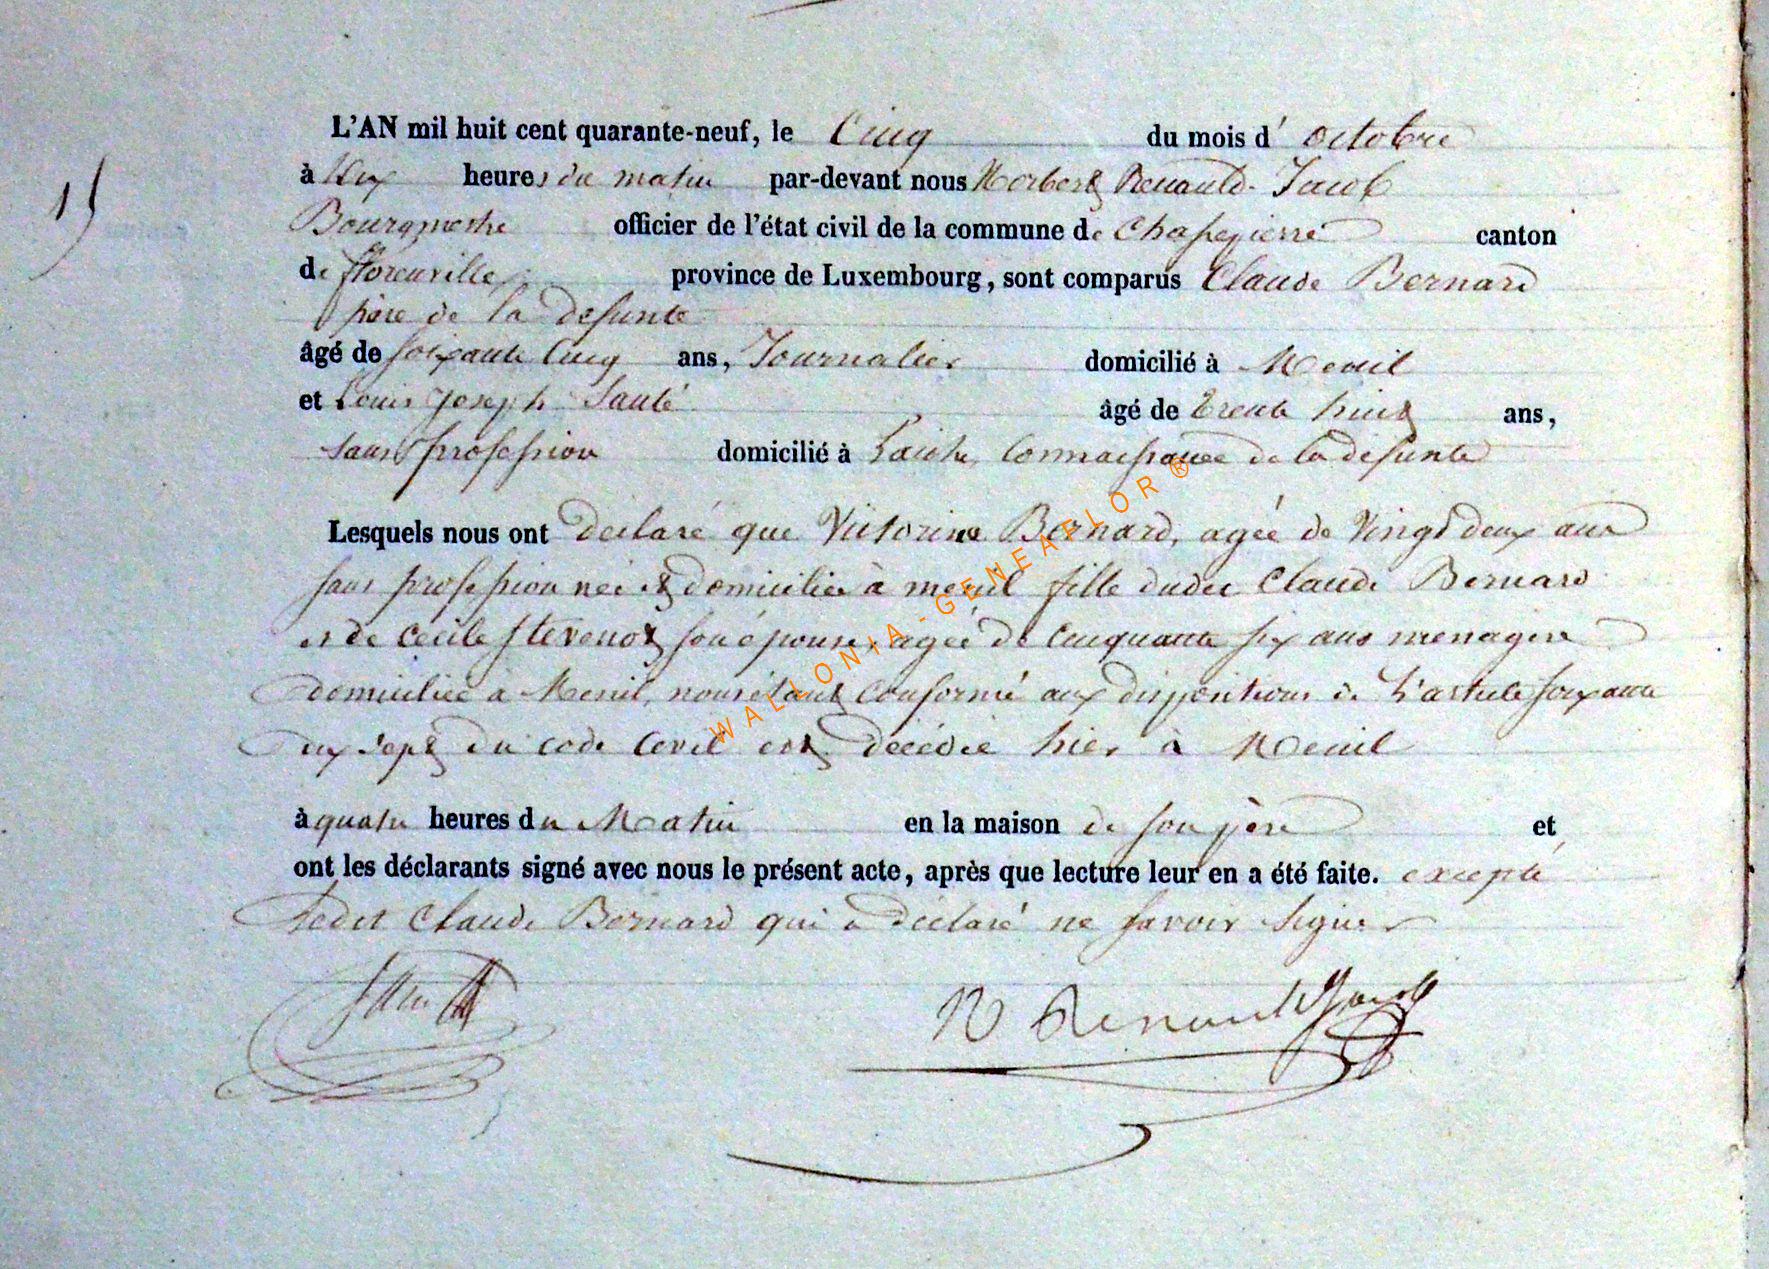 15
L'AN mil huit cent quarante-neuf, le Cinq du mois d' octobre
à dix heures du matin par-devant nous Norbert Renauld-Jacob
Bourgmestre officier de l'état civil de la commune de Chassepierre canton
de florenville province de Luxembourg, sont comparus Claude Bernard
père de la défunte
âgé de soixante Cinq ans, Journalier domicilié à Menil
et Louis Joseph Sauté âgé de trente huit ans,
sans profession domicilié à Laiche, Connaissance de la défunte
Lesquels nous ont déclaré que Victorine Bernard, agée de Vingt deux ans
sans profession née et domiciliée à menil fille dudit Claude Bernard
et de Cecile stevenot son épouse, agée de cinquante six ans menagère
domiciliée à Menil, nous étant conformé aux dispositions de L'article soixante
dix sept du code Civil est décédée hier à Menil
à quatre heures du Matin en la maison de son père et
ont les déclarants signé avec nous le présent acte, après que lecture leur en a été faite. excepté
Ledit Claude Bernard qui a déclaré ne savoir signer
N Renauld Jacob
WALLONIA-GENEAFLOR ®